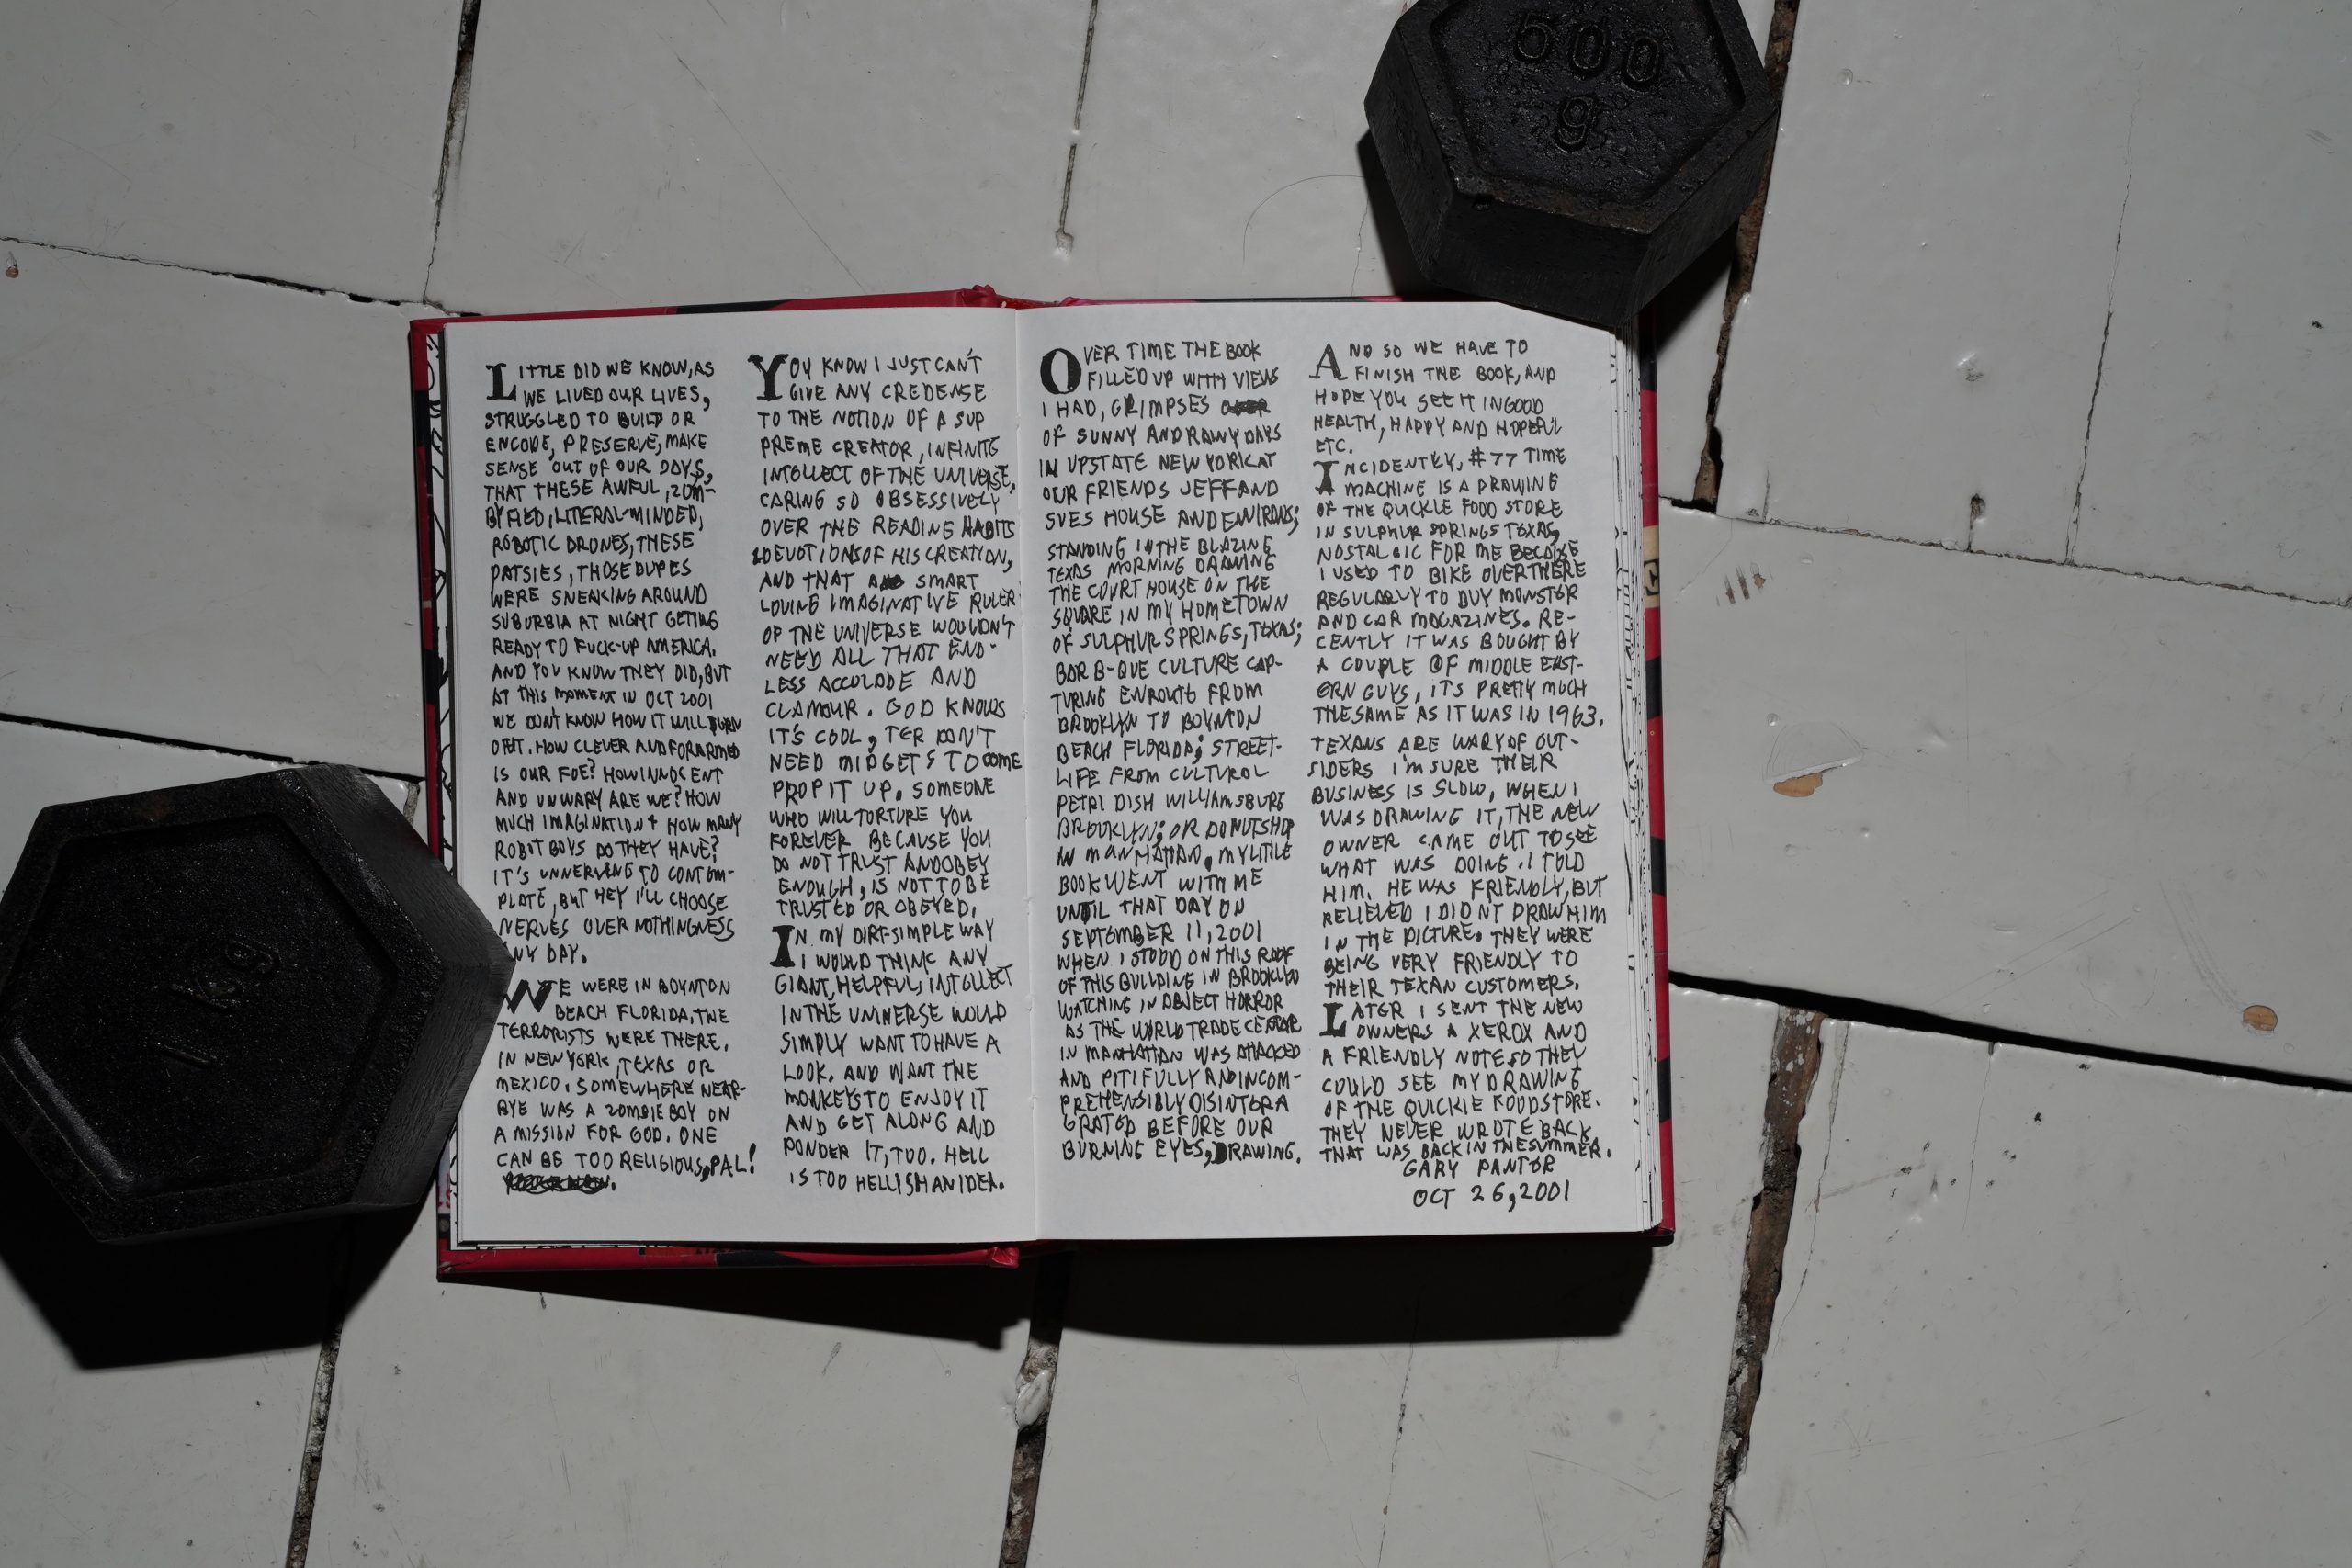 500
g
1 Kg
LITTLE DID WE KNOW, AS
WE LIVED OUR LIVES,
STRUGGLED TO BUILD OR
ENCODE, PRESERVE, MAKE
SENSE OUT OF OUR DAYS,
THAT THESE AWFUL, ZOM-
BYFIED, LITERAL-MINDED,
ROBOTIC DRONES, THESE
PATSIES, THOSE DUPES
WERE SNEAKING AROUND
SUBURBIA AT NIGHT GETTING
READY TO FUCK-UP AMERICA.
AND YOU KNOW THEY DID, BUT
AT THIS MOMENT IN OCT 2001
WE DON'T KNOW HOW IT WILL TURN
OUT. HOW CLEVER AND FORARMED
IS OUR FOE? HOW INNOCENT
AND UNWARY ARE WE? HOW
MUCH IMAGINATION & HOW MANY
ROBOT BOYS DO THEY HAVE?
IT'S UNNERVING TO CONTEM-
PLATE, BUT HEY I'LL CHOOSE
NERVES OVER NOTHINGNESS
ANY DAY.
WE WERE IN BOYNTON
BEACH FLORIDA, THE
TERRORISTS WERE THERE.
IN NEW YORK, TEXAS OR
MEXICO. SOMEWHERE NEAR-
BYE WAS A ZOMBIE BOY ON
A MISSION FOR GOD. ONE
CAN BE TOO RELIGIOUS, PAL!
YOU KNOW I JUST CAN'T
GIVE ANY CREDENSE
TO THE NOTION OF A SUP
PREME CREATOR, INFINITE
INTELLECT OF THE UNIVERSE,
CARING SO OBSESSIVELY
OVER THE READING HABITS
& DEVOTIONS OF HIS CREATION,
AND THAT SMART
LOVING IMAGINATIVE RULER
OF THE UNIVERSE WOULDN'T
NEED ALL THAT END-
LESS ACCOLADE AND
CLAMOUR. GOD KNOWS
IT'S COOL, TER DON'T
NEED MIDGETS TO COME
PROP IT UP. SOMEONE
WHO WILL TORTURE YOU
FOREVER BECAUSE YOU
DO NOT TRUST AND OBEY
ENOUGH, IS NOT TO BE
TRUSTED OR OBEYED.
IN MY DIRT-SIMPLE WAY
I WOULD THINK ANY
GIANT, HELPFUL, INTELLECT
IN THE UNIVERSE WOULD
SIMPLY WANT TO HAVE A
LOOK. AND WANT THE
MONKEYS TO ENJOY IT
AND GET ALONG AND
PONDER IT, TOO. HELL
IS TOO HELLISH AN IDEA.
OVER TIME THE BOOK
FILLED UP WITH VIEWS
I HAD, GLIMPSES
OF SUNNY AND RAINY DAYS
IN UPSTATE NEW YORK AT
OUR FRIENDS JEFF AND
SVES HOUSE AND ENVIRONS;
STANDING IN THE BLAZING
TEXAS MORNING DRAWING
THE COURT HOUSE ON THE
SQUARE IN MY HOMETOWN
OF SULPHUR SPRINGS, TEXAS;
BAR B-QUE CULTURE CAP-
TURING ENROUTE FROM
BROOKLYN TO BOYNTON
BEACH FLORIDA; STREET-
LIFE FROM CULTURAL
PETRI DISH WILLIAMSBURG
BROOKLYN; OR DONUTSHOP
IN MANHATTAN, MY LITTLE
BOOK WENT WITH ME
UNTIL THAT DAY ON
SEPTEMBER 11, 2001
WHEN I STOOD ON THIS ROOF
OF THIS BUILDING IN BROOKLYN
WATCHING IN OBJECT HORROR
AS THE WORLD TRADE CENTER
IN MANHATTAN WAS ATTACKED
AND PITIFULLY AND INCOM-
PREHENSIBLY DISINTEGRA
GRATED BEFORE OUR
BURNING EYES, DRAWING.
AND SO WE HAVE TO
FINISH THE BOOK, AND
HOPE YOU SEE IT IN GOOD
HEALTH, HAPPY AND HOPEFUL
ETC.
INCIDENTLY, #77 TIME
MACHINE IS A DRAWING
OF THE QUICKIE FOOD STORE
IN SULPHUR SPRINGS TEXAS,
NOSTALGIC FOR ME BECAUSE
I USED TO BIKE OVER THERE
REGULARLY TO BUY MONSTER
AND CAR MAGAZINES. RE-
CENTLY IT WAS BOUGHT BY
A COUPLE OF MIDDLE EAST-
ERN GUYS, ITS PRETTY MUCH
THE SAME AS IT WAS IN 1963.
TEXANS ARE WARY OF OUT-
SIDERS I'M SURE THEIR
BUSINESS IS SLOW, WHEN I
WAS DRAWING IT, THE NEW
OWNER CAME OUT TO SEE
WHAT WAS DOING. I TOLD
HIM. HE WAS FRIENDLY, BUT
RELIEVED I DIDNT DRAW HIM
IN THE PICTURE. THEY WERE
BEING VERY FRIENDLY TO
THEIR TEXAN CUSTOMERS.
LATER I SENT THE NEW
OWNERS A XEROX AND
A FRIENDLY NOTE SO THEY
COULD SEE MY DRAWING
OF THE QUICKIE FOODSTORE.
THEY NEVER WROTE BACK
THAT WAS BACK IN THE SUMMER.
GARY PANTER
OCT 26, 2001